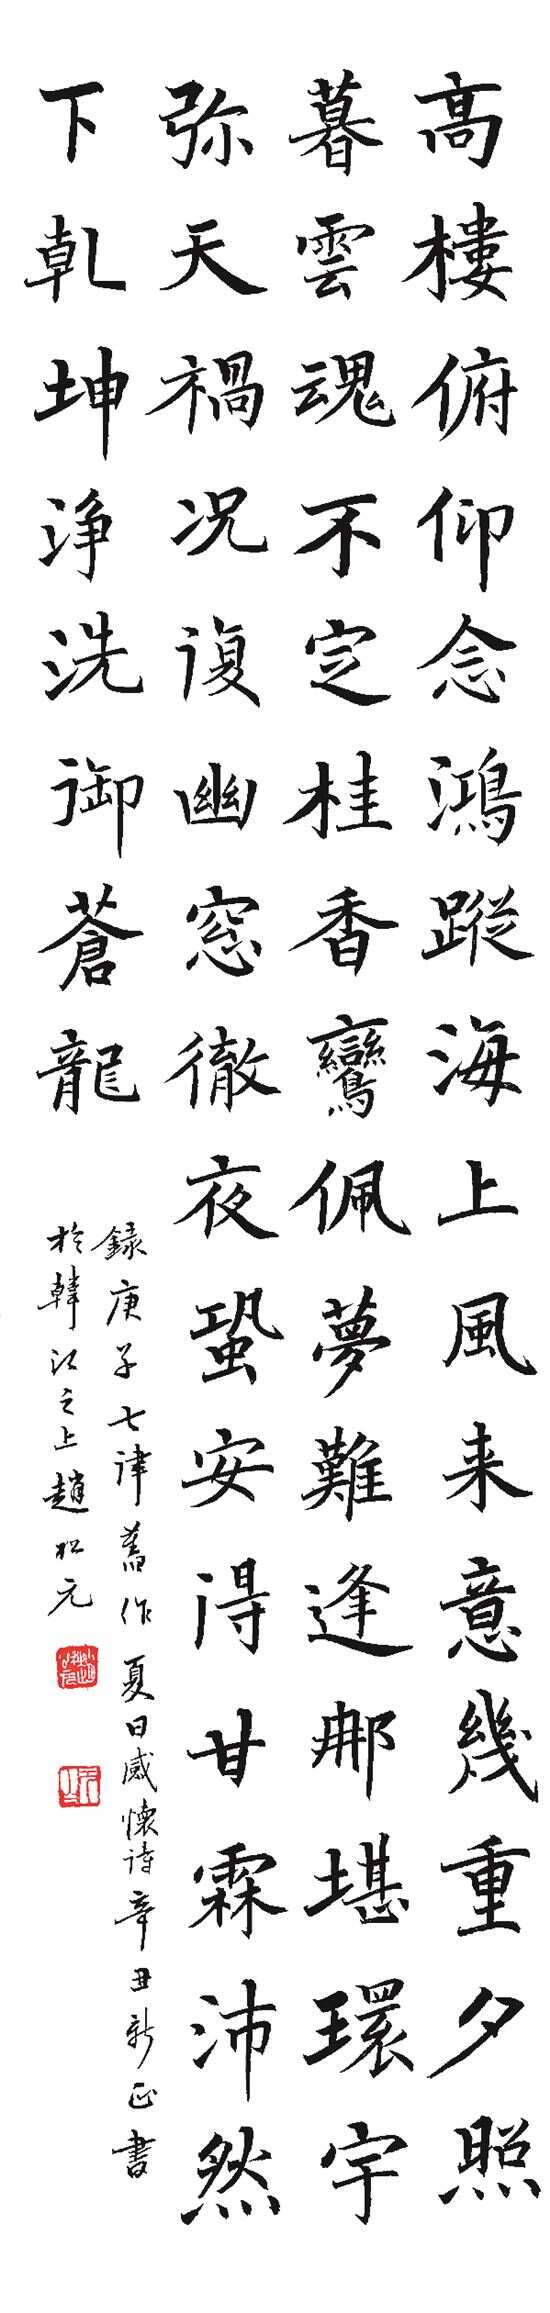 髙樓俯仰念鴻蹤海上風来意幾重夕照
暮雲魂不定桂香鸞佩夢難逢那堪環宇
弥天禍况復幽窓徹夜蛩安得甘霖沛然
下乾坤浄洗御蒼龍
録庚子七律舊作夏日感懷诗辛丑新正書
於韓江之上趙松元